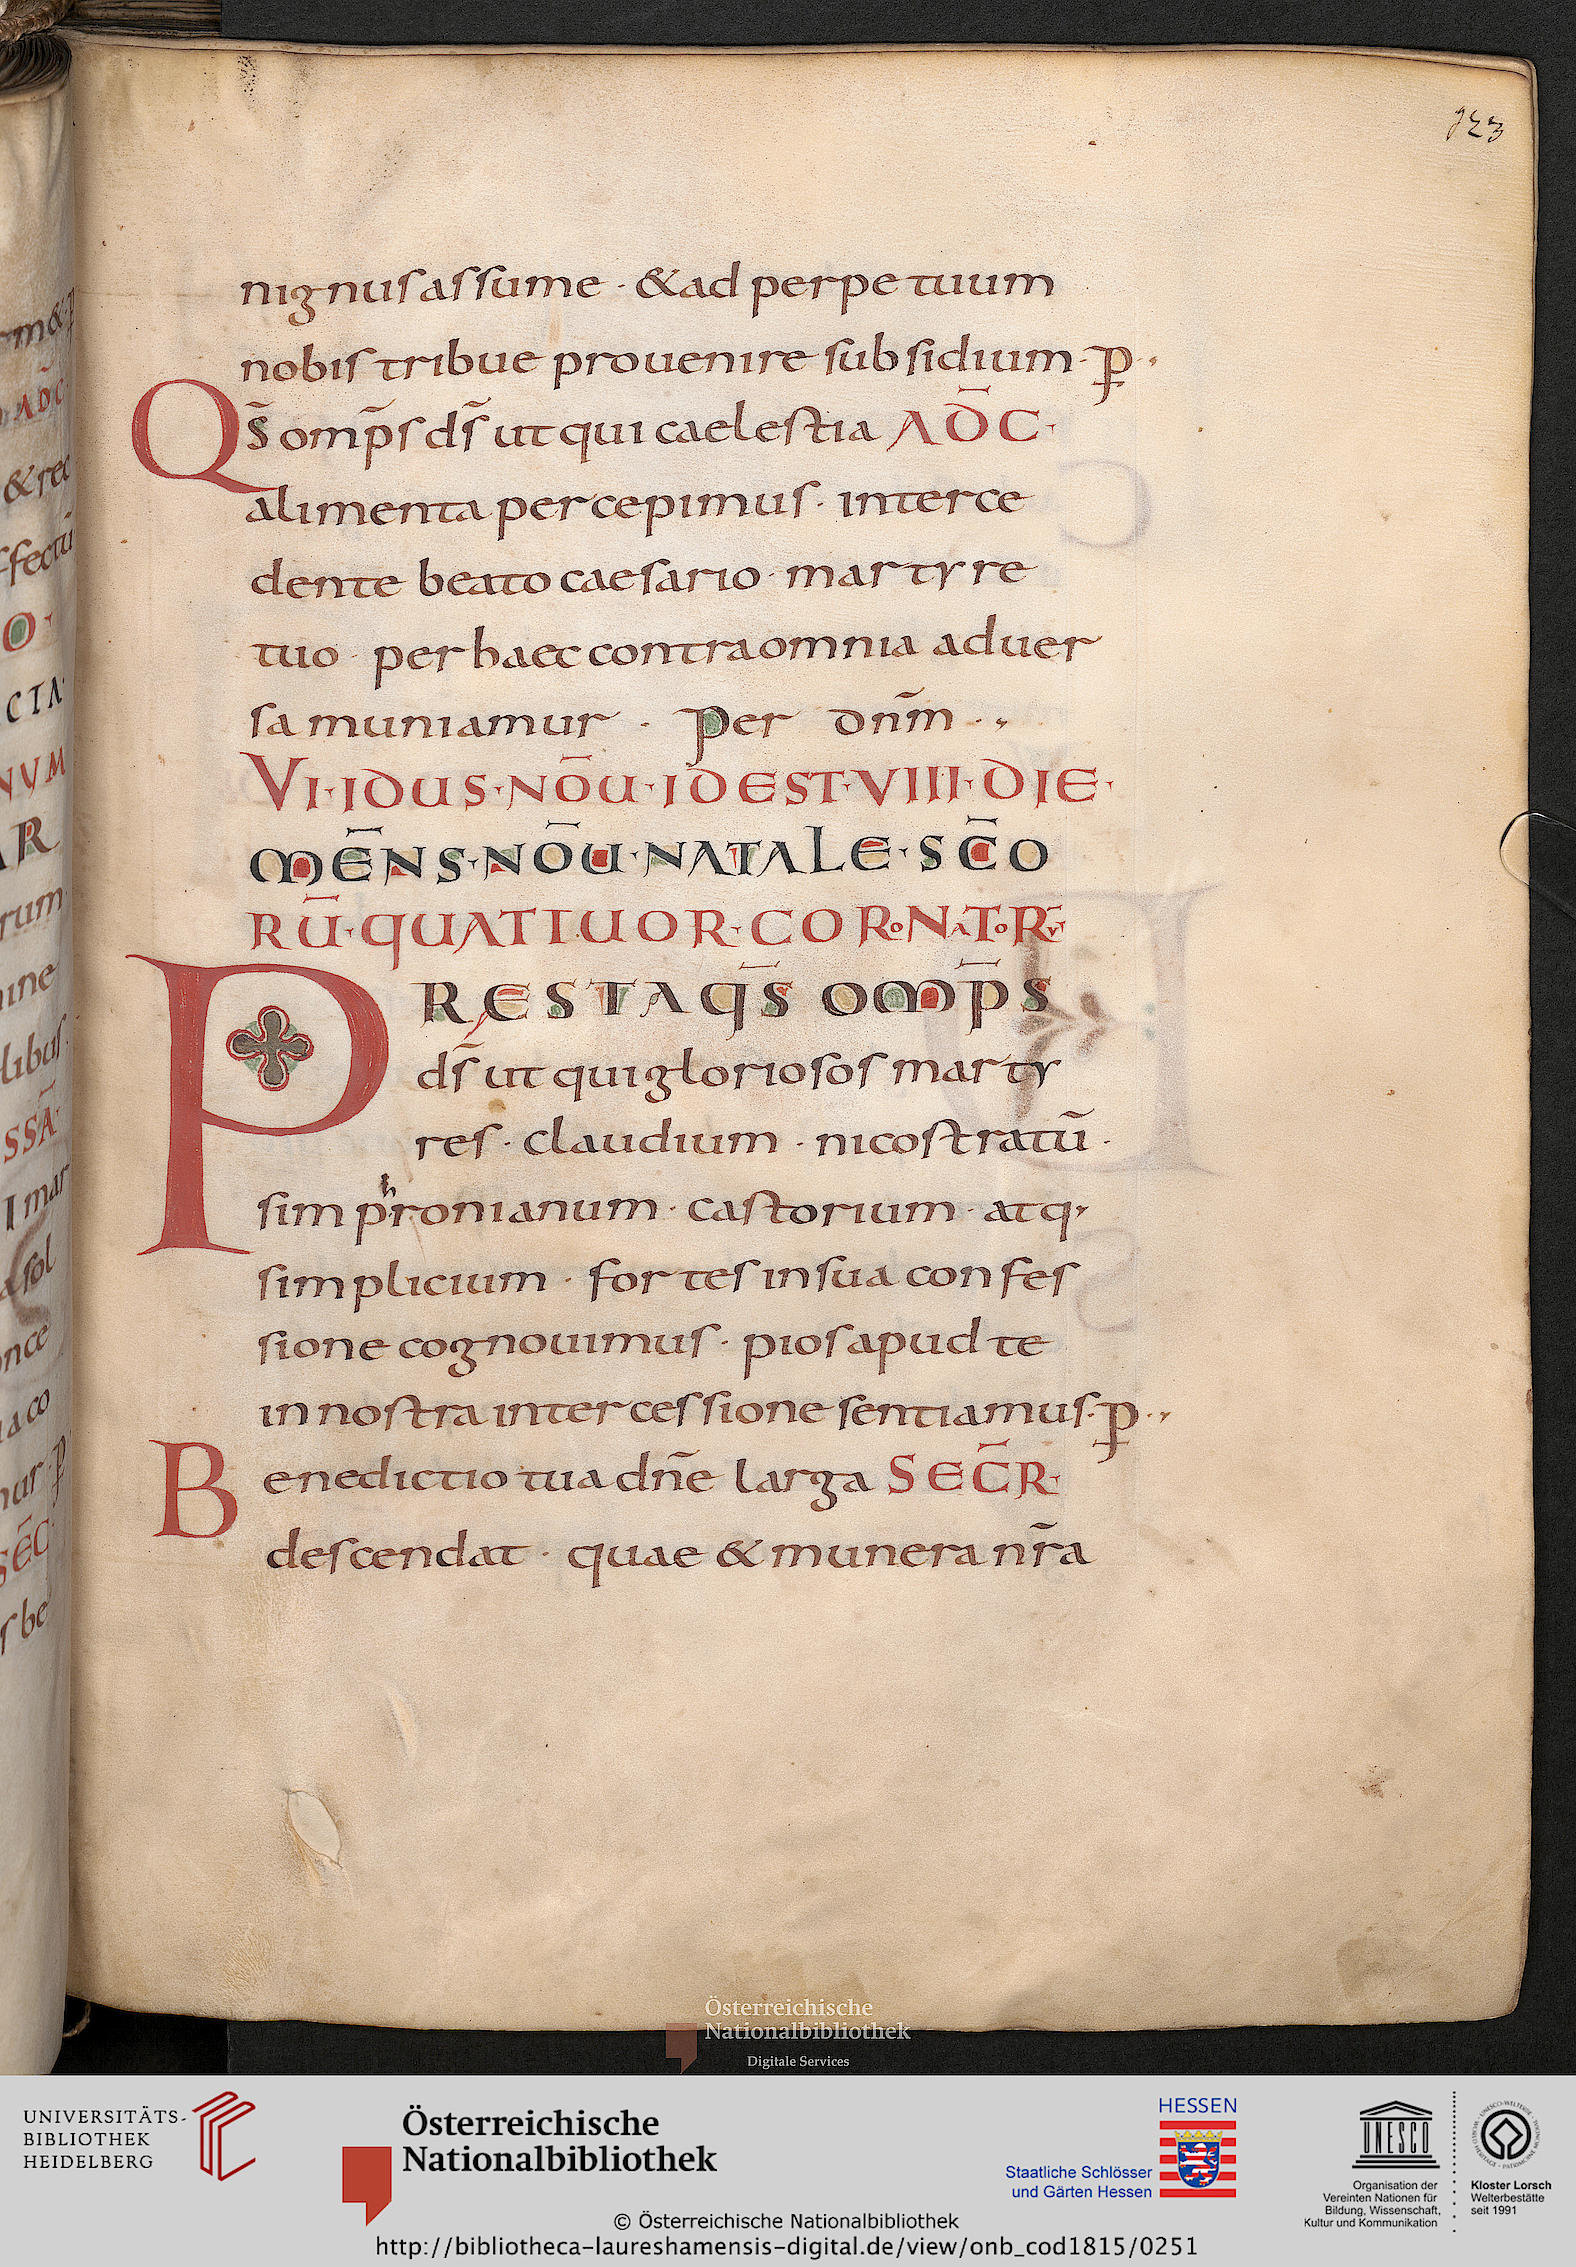 123
nignus assume · & ad perpetuum
nobis tribue prouenire subsidium · p̱ ·,
Qs̄ omp̄s ds̄ ut qui caelestia AD̄C·
alimenta percepimus · interce
dente beato caesario · martyre
tuo · per haec contra omnia aduer
sa muniamur · per dnm̄ ·,
VI·IDUS·NOU̅·IDEST·VIII·DIE·
MEN̅S·NOU̅·NATALE·SC̄O
RŪ·QUATTUOR·CORONATORV̄
PRĘSTA Q̄S OMP̄S
ds̄ ut qui gloriosos marty
res · claudium · nicostratū ·
simphronianum · castorium · atq,
simplicium · fortes in sua confes
sione cognouimus · pios apud te
in nostra intercessione sentiamus · p̱ ·,
Benedictio tua dn̄e larga SEC̄R·
descendat · quae & munera nr̄a
m&
AD̄C
& rec
ffectū
O·
CTA·
NVM
AR
rum
ine
libus
SSA·
I mar
a sol
once
a co
nur · p̱
SEC̄
r be
Österreichische
Nationalbibliothek
Digitale Services
UNIVERSITÄTS-
BIBLIOTHEK
HEIDELBERG
Österreichische
Nationalbibliothek
HESSEN
Staatliche Schlösser
und Gärten Hessen
UNESCO
Organisation der
Vereinten Nationen für
Bildung, Wissenschaft,
Kultur und Kommunikation
Kloster Lorsch
Welterbestätte
seit 1991
© Österreichische Nationalbibliothek
http://bibliotheca-laureshamensis-digital.de/view/onb_cod1815/0251